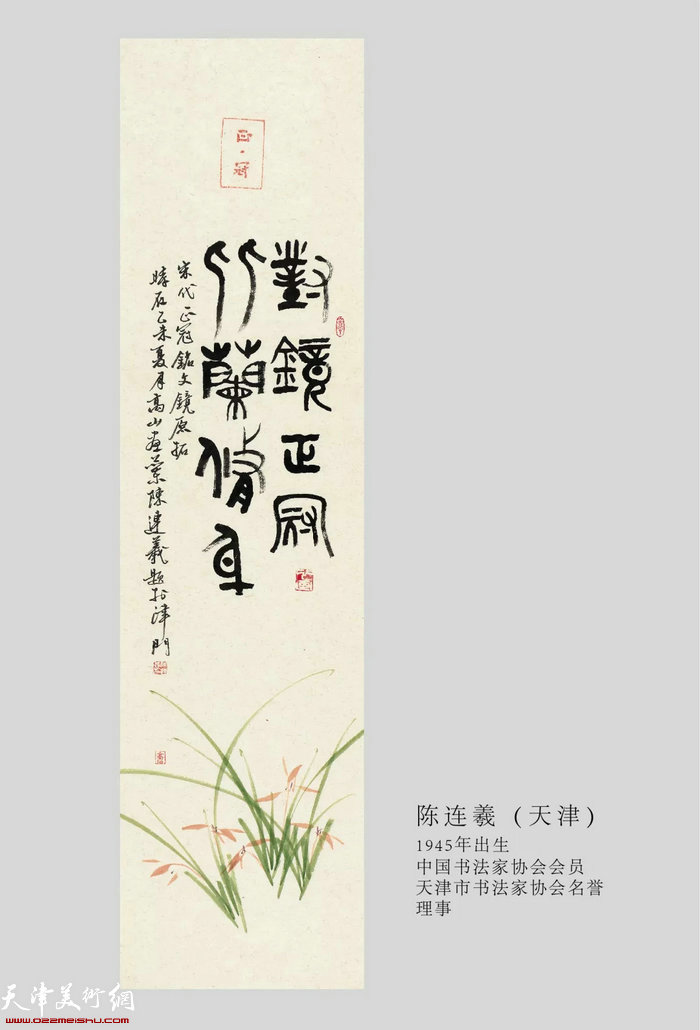 正·冠
對鏡正冠
竹蘭修身
宋代正冠銘文鏡原拓
時在乙未夏月高山画業陳連羲題於津門
陈连羲（天津）
1945年出生
中国书法家协会会员
天津市书法家协会名誉
理事
天津美術網
www.022meishu.com